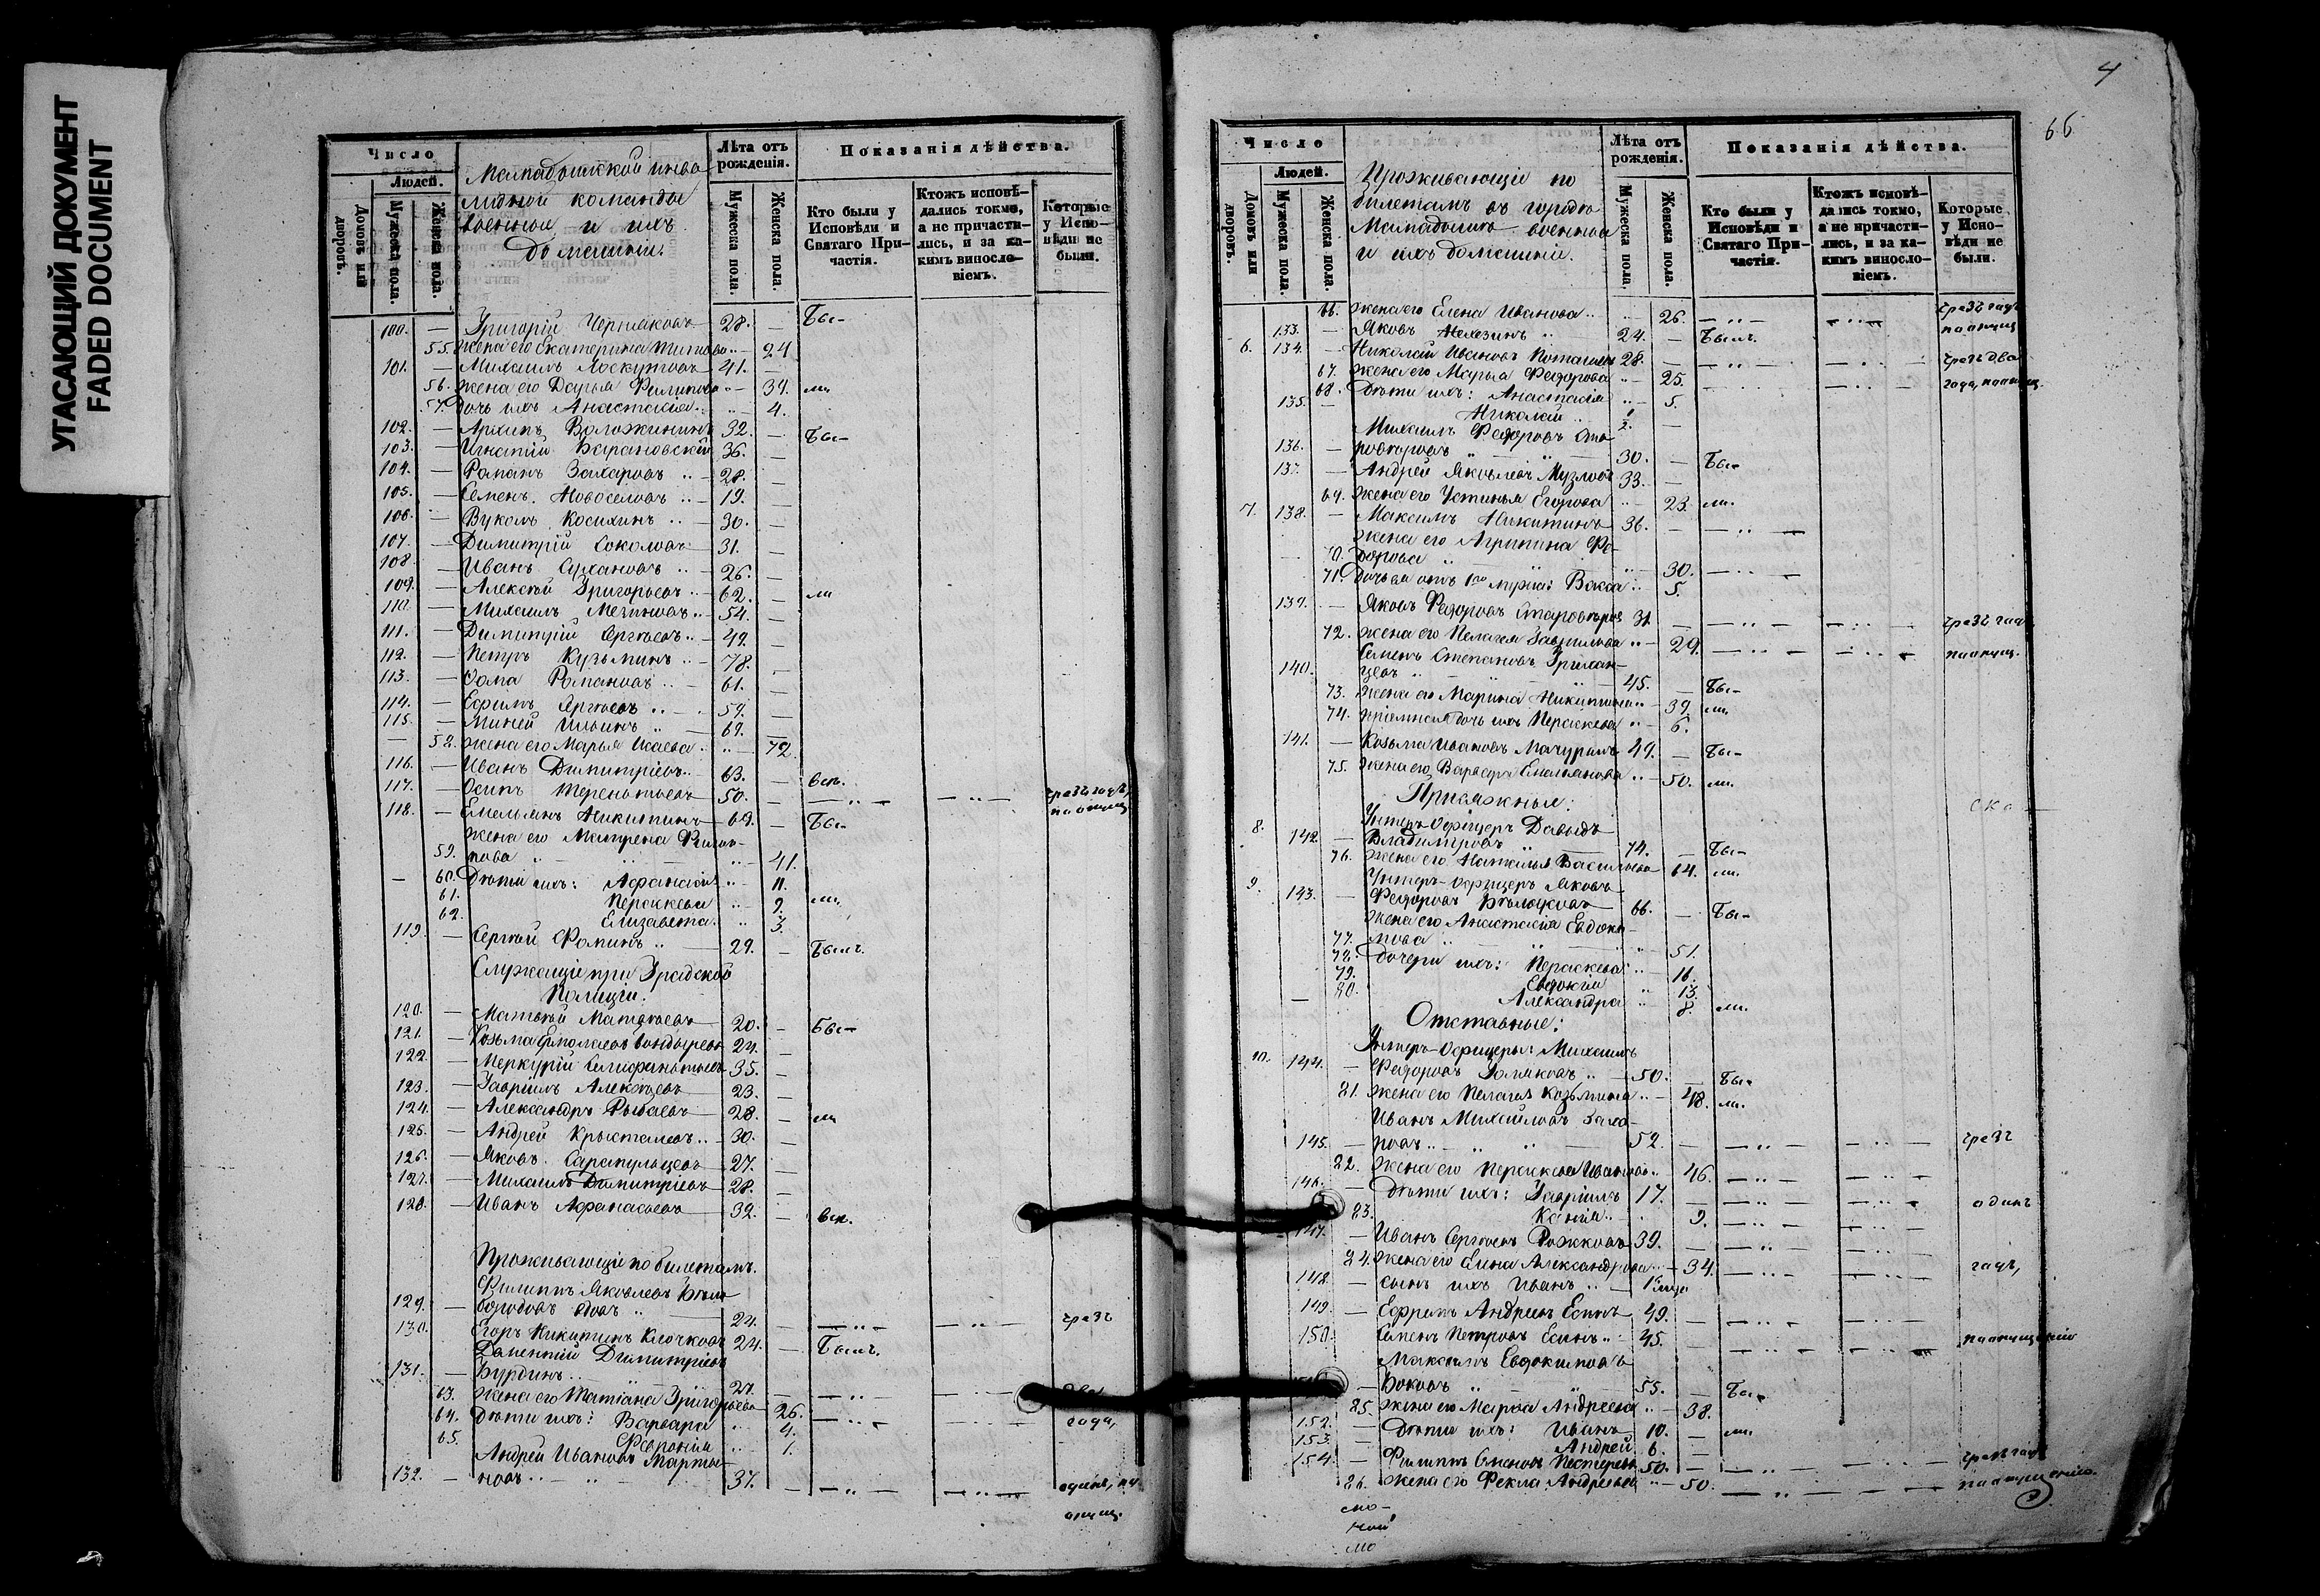 УГАСАЮЩИЙ ДОКУМЕНТ
FADED DOCUMENT
Число
Людей.
Домовъ или дворовъ.
Мужеска пола.
Женска пола.
Мамадышской инва
лидной команды
военные и ихъ
домашніи.
Лѣта отъ рожденія.
Мужеска пола.
Женска пола.
Показанія дѣйства.
Кто были у Исповѣди и Святаго При- частія.
Ктожъ исповѣ- дались токмо, а не причасти- лись, и за ка- кимъ винослo- віемъ.
Которые у Испо- вѣди не были.
100. — Григорій Черпаковъ 28. — Бы-
55. жена его Екатерина Титова " — 24
101. — Михаилъ Лоскутовъ 41. —
56. жена его Дарья Филипова " — 39. ли
57. дочь ихъ Анастасія " — 4.
102. — Архипъ Воложининъ 32. — Бы-
103. — Игнатій Барановскій 36. —
104. — Романъ Захаровъ 28. —
105. — Семенъ Новоселовъ 19. —
106. — Вуколъ Косихинъ 30. —
107. — Димитрій Соколовъ 31. —
108. — Иванъ Сухановъ 26. —
109. — Алексѣй Григорьевъ 62. — ли
110. — Михаилъ 54. —
111. — Димитрій Сергѣевъ 49. —
112. — Петръ Кузьминъ 78. —
113. — Ѳома Романовъ 61. —
114. — Ефимъ Сергѣевъ 59. —
115. — Миней Ильинъ 69. —
— 58. жена его Марья Исаева " — 72.
116. — Иванъ Димитріевъ 63. — всѣ.
117. — Осипъ Терентьевъ 50. — — " — — " — чрезъ годъ
118. — Емельянъ Никитинъ 69. — Бы- по опущ
жена его Матрена Филип-
59. пова " — 41.
— 60. Дѣти ихъ: Афанасія " — 11.
61. Параскева " — 9. ли
62. Елизавета " 3.
119. — Сергѣй Ѳоминъ 29. — Былъ.
Служащіе при Градской
Полиціи.
120. — Матвѣй Матвѣевъ 20. — Бы-
121. — Козьма Ермолаевъ 24. —
122. — Меркурій Селифантьевъ 35. —
123. — Гавріилъ Алексѣевъ 23. —
124. — Александръ Рыбаевъ 28. — ли
125. — Андрей Крысталевъ 30. —
126. — Яковъ Сарапульцевъ 27. —
127. — Михаилъ Димитріевъ 28. —
128. — Иванъ Афанасьевъ 32. — всѣ.
Проживающіе по билетамъ.
Филиппъ Яковлевъ Бѣло
129. — бородовъ вдовъ 24. — — " — — " — чрезъ
130. Егоръ Никитинъ Клочковъ 24. — Былъ.
Димитріевъ
131. — Бурдинъ 27. — — " — — " — два
63. жена его Татіана Григорьева 26. — " — — " — года,
64. дѣти ихъ: Варвара " 4.
65. Февронія " 1.
Андрей Ивановъ Марты-
132. — новъ 37. — — " — — " — одинъ, по
опущ.
4
66
Число
Людей.
Домовъ или дворовъ.
Мужеска пола.
Женска пола.
Проживающіе по
билетамъ въ городѣ
Мамадышѣ военные
и ихъ домашніи.
Лѣта отъ рожденія.
Мужеска пола.
Женска пола.
Показанія дѣйства.
Кто были у Исповѣди и Святаго При- частія.
Ктожъ исповѣ- дались токмо, а не причасти- лись, и за ка- кимъ винослo- віемъ.
Которые у Испо- вѣди не были.
66. жена его Елена Иванова " — 26. — " — — " — чрезъ годъ
133. — Яковъ 24. — Былъ. по опущ
6. 134. — Николай Ивановъ 28. — — " — — " — чрезъ два
67. жена его Марья Федорова " — 25. года, по опущ.
68. Дѣти ихъ: Анастасія " — 5.
135. — Николай
Михаилъ Федоровъ Ста
136. — ровѣровъ 30. — Бы-
137. — Андрей Яковлевъ Музловъ 33. —
69. жена его Устинья Егорова " — 23. ли.
7. 138. — Максимъ Никитинъ 36. — — " —
жена его Агрипина Фе-
70. дорова " — 30. — " —
71. Дочь ея отъ 1го мужа: Васса " 5.
139. — Яковъ Федоровъ Старовѣровъ 31 — — " — — " — чрезъ годъ
72. жена его Пелагея Гаврилова " — 29. — " — — " — по опущ.
Семенъ Степановъ
140. цевъ 45. — Бы-
73. жена его Марина Никитина " — 39. ли
74. пріемная дочь ихъ Параскева " — 6.
141. — Козьма Ивановъ Мачуринъ 49. — Бы-
75. жена его Варвара Емельянова " — 50. ли.
Присяжные:
Унтеръ-офицеръ Давыдъ
8. 142. — Владиміровъ 74. — Бы-
76. жена его Наталья Васильева 64. ли.
Унтеръ-офицеръ Яковъ
9. 143. — Федоровъ 66. — Бы-
жена его Анастасія Евдоки-
77. мова " — 51.
78. дочери ихъ: Параскева " — 16.
79. Евдокія " 13.
80. Александра " — 8. ли.
Отставные:
Унтеръ-офицеры: Михаилъ
10. 144. — Федоровъ 50. — Бы-
81. жена его Пелагея Козьмина " — 48. ли.
Иванъ Михайловъ Заха
145. — ровъ 52. — — " — — " — чрезъ
82. жена его Параскева Иванова " 46. — " — — " —
146. — дѣти ихъ: Гавріилъ 17. — — " — — " — одинъ
83. Ксенія " 9. — " — — " —
147. — Иванъ Сергѣевъ Рожковъ 39. — — " — — " —
84. жена его Елена Александрова " — 34. — " — — " — годъ,
148. — сынъ ихъ Иванъ
149. — Ефремъ Андреевъ Есинъ 49. — — " — — " —
150. Семенъ Петровъ Есинъ 45. — — " — — " — по опущенію
Максимъ Евдокимовъ
— Боковъ 55. — Бы-
85. жена его Марѳа Андреева " — 38.
152. — Дѣти ихъ: Иванъ 10. — ли.
153. — Андрей 6. —
154. — Филиппъ Семеновъ Пестеревъ 50. — — " — — " — чрезъ годъ
86. жена его Фекла Андреева " — 50. — " — — " — по опущенію.